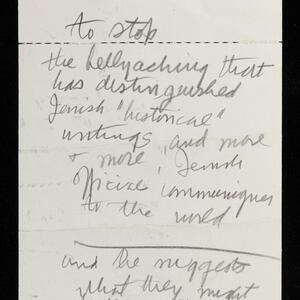 to stop
the bellyaching that
has distinguished
Jewish "historical"
writings and more
& more, Jewish
Officia communiques
to the world
and the suggests
what they might